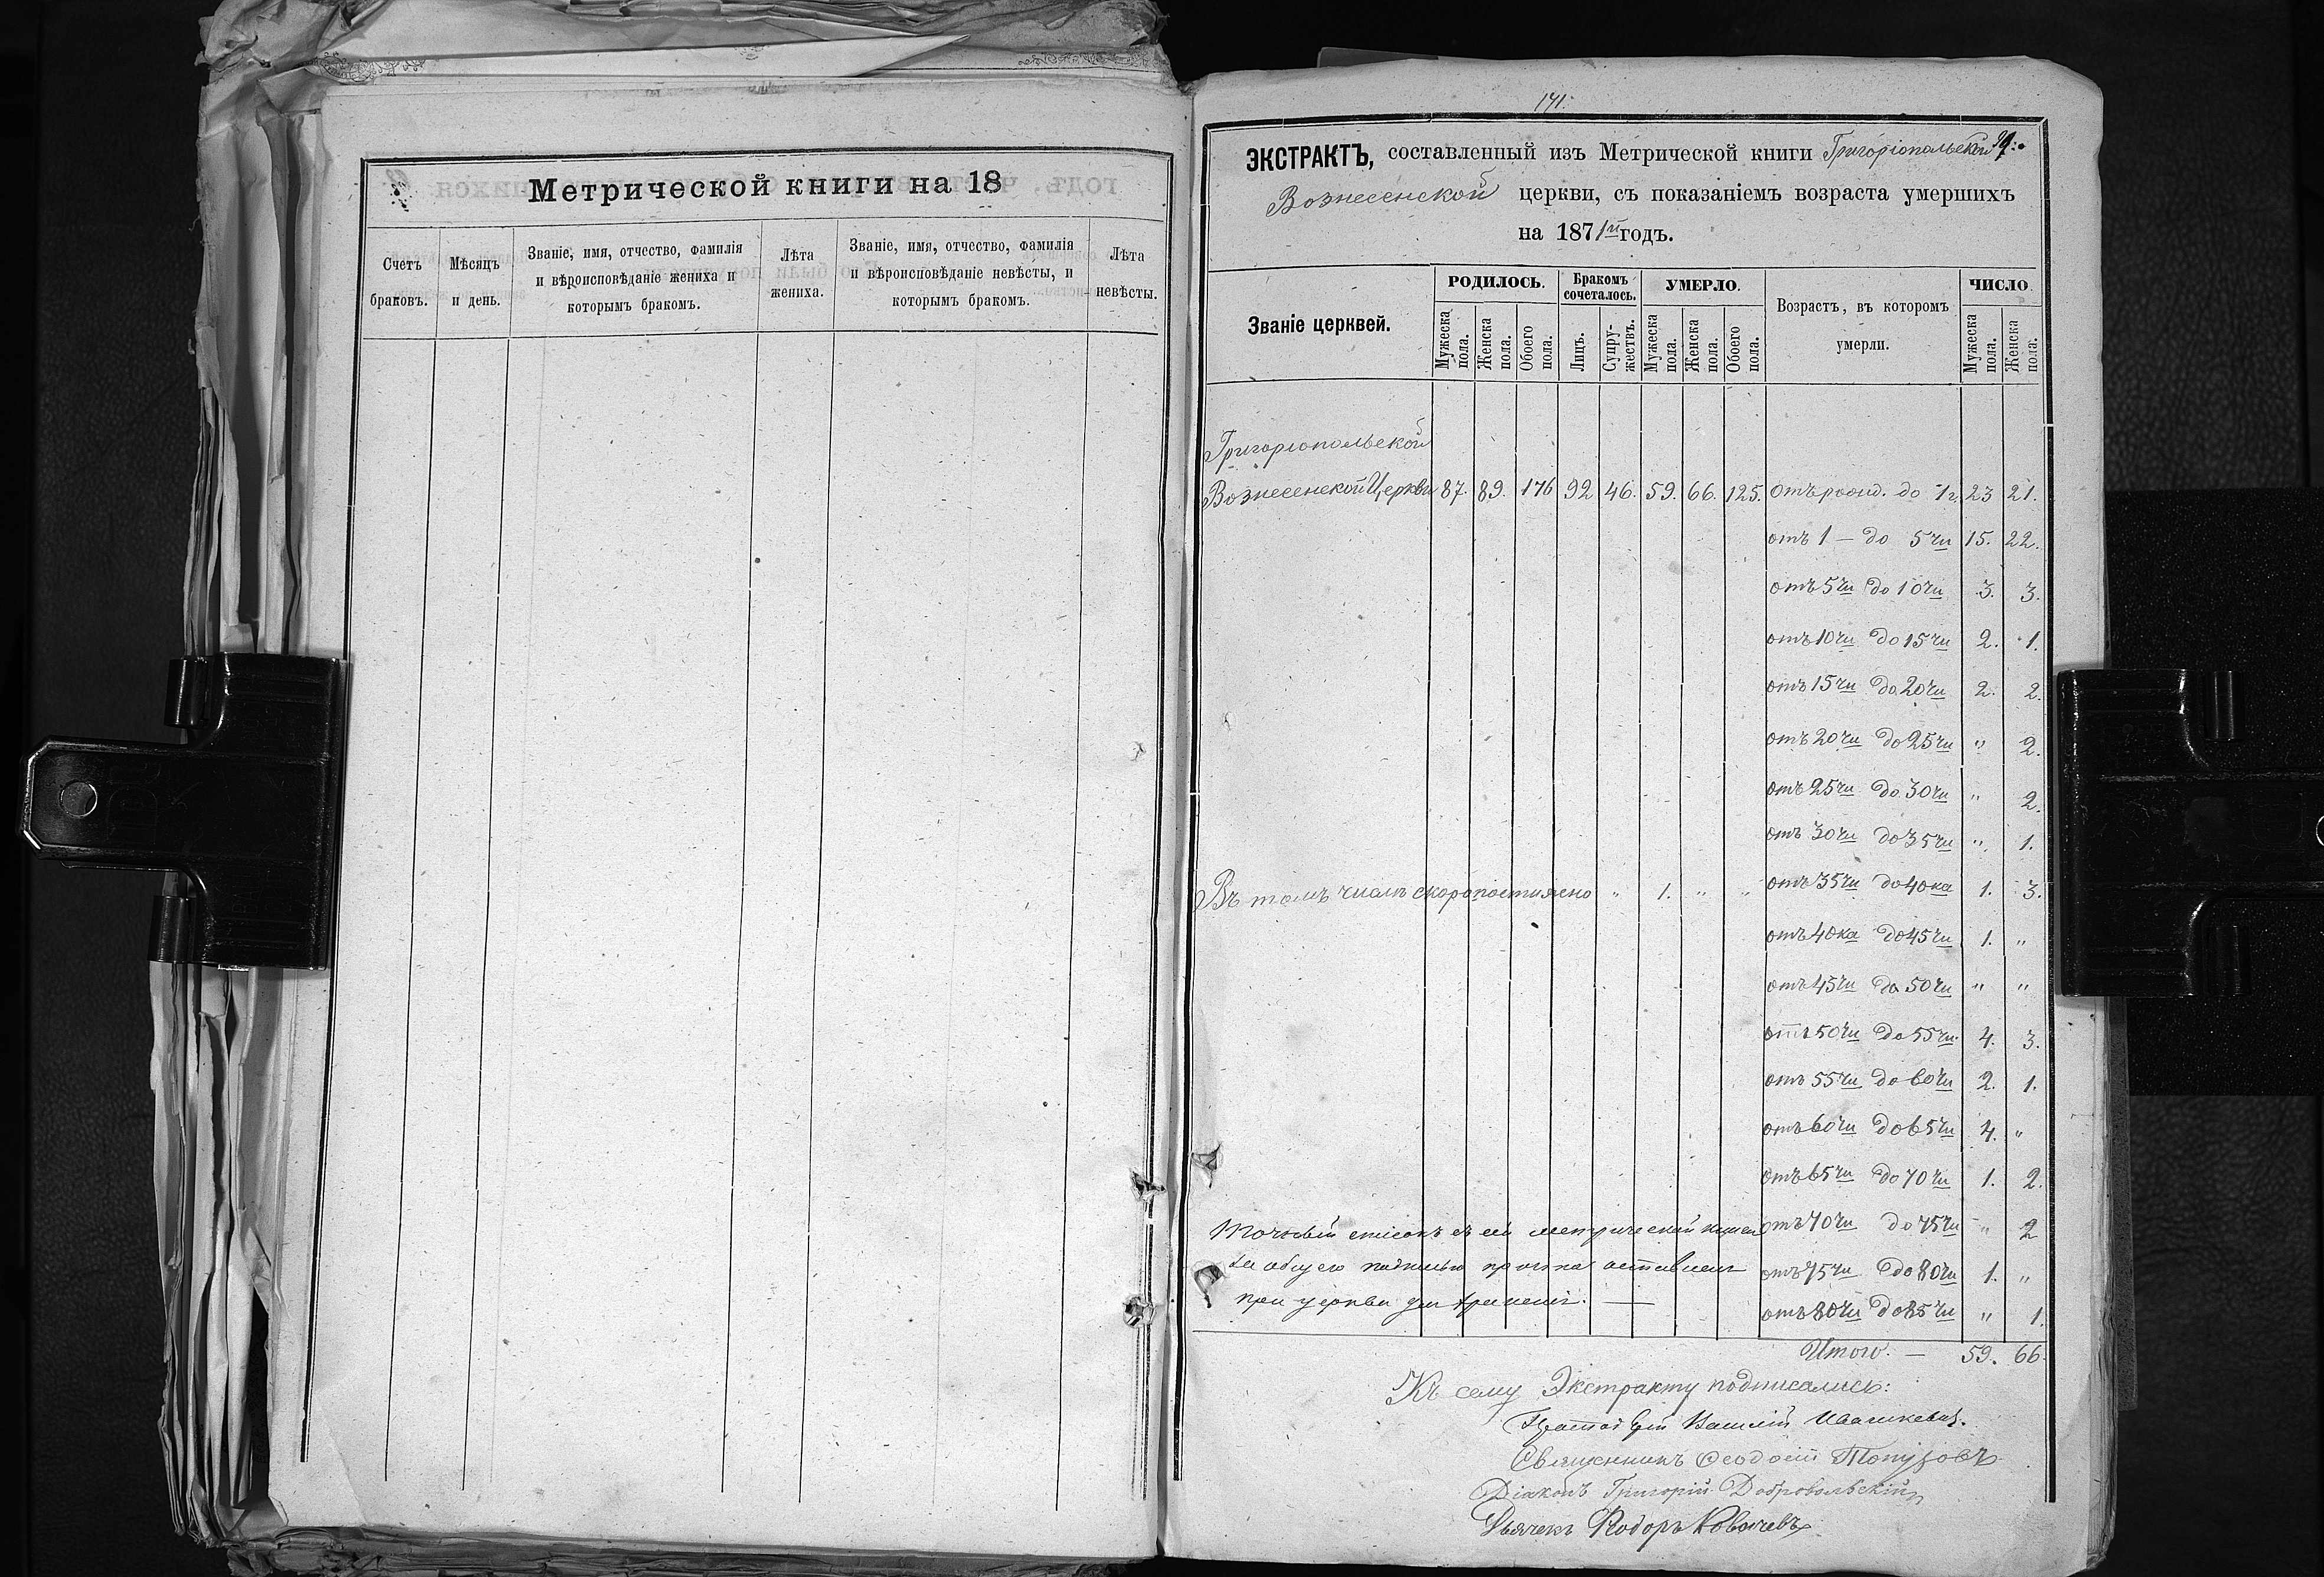 Метрической книги на 18
Счетъ браковъ.
Мѣсяцъ и день.
Званіе, имя, отчество, фамилія
и вѣроисповѣданіе жениха и
которымъ бракомъ.
Лѣта жениха.
Званіе, имя, отчество, фамилія
и вѣроисповѣданіе невѣсты, и
которымъ бракомъ.
Лѣта невѣсты.
ЭКСТРАКТЪ, составленный изъ Метрической книги Григоріопольской
Вознесенской церкви, съ показаніемъ возраста умершихъ
на 1871й годъ.
Званіе церквей.
РОДИЛОСЬ.
Мужеска пола.
Женска пола.
Обоего пола.
Бракомъ сочеталось.
Лицъ.
Супружествъ.
УМЕРЛО.
Мужеска пола.
Женска пола.
Обоего пола.
Возрастъ, въ которомъ
умерли.
ЧИСЛО
Мужеска пола.
Женска пола.
Григоріопольской
Вознесенской Церкви 87. 89. 176 92 46. 59. 66. 125. отъ рожд. до 1г. 23 21.
отъ 1 — до 5ти 15. 22.
отъ 5ти до 10ти 3. 3.
отъ 10ти до 15ти 2. 1.
отъ 15ти до 20ти 2. 2.
отъ 20ти до 25ти " 2.
отъ 25ти до 30ти " 2.
отъ 30ти до 35ти " 1.
Въ томъ числѣ скоропостижно " 1. " " отъ 35ти до 40ка 1. 3.
отъ 40ка до 45ти 1. "
отъ 45ти до 50ти " "
отъ 50ти до 55ти 4. 3.
отъ 55ти до 60ти 2. 1.
отъ 60ти до 65ти 4. "
отъ 65ти до 70ти 1. 2.
отъ 70ти до 75ти " 2
отъ 75ти до 80ти 1. "
отъ 80ти до 85ти " 1.
Точный списокъ съ сей метрической книги
за общею подписью причта оставленъ
при церкви для храненія. —
Итого. — 59. 66.
Къ сему Экстракту подписались:
Протоіерей Василій Ивашкевич.
Священникъ Феодосій Топузовъ
Діаконъ Григорій Добровольскій
Дьячекъ Ѳодоръ Ковачевъ